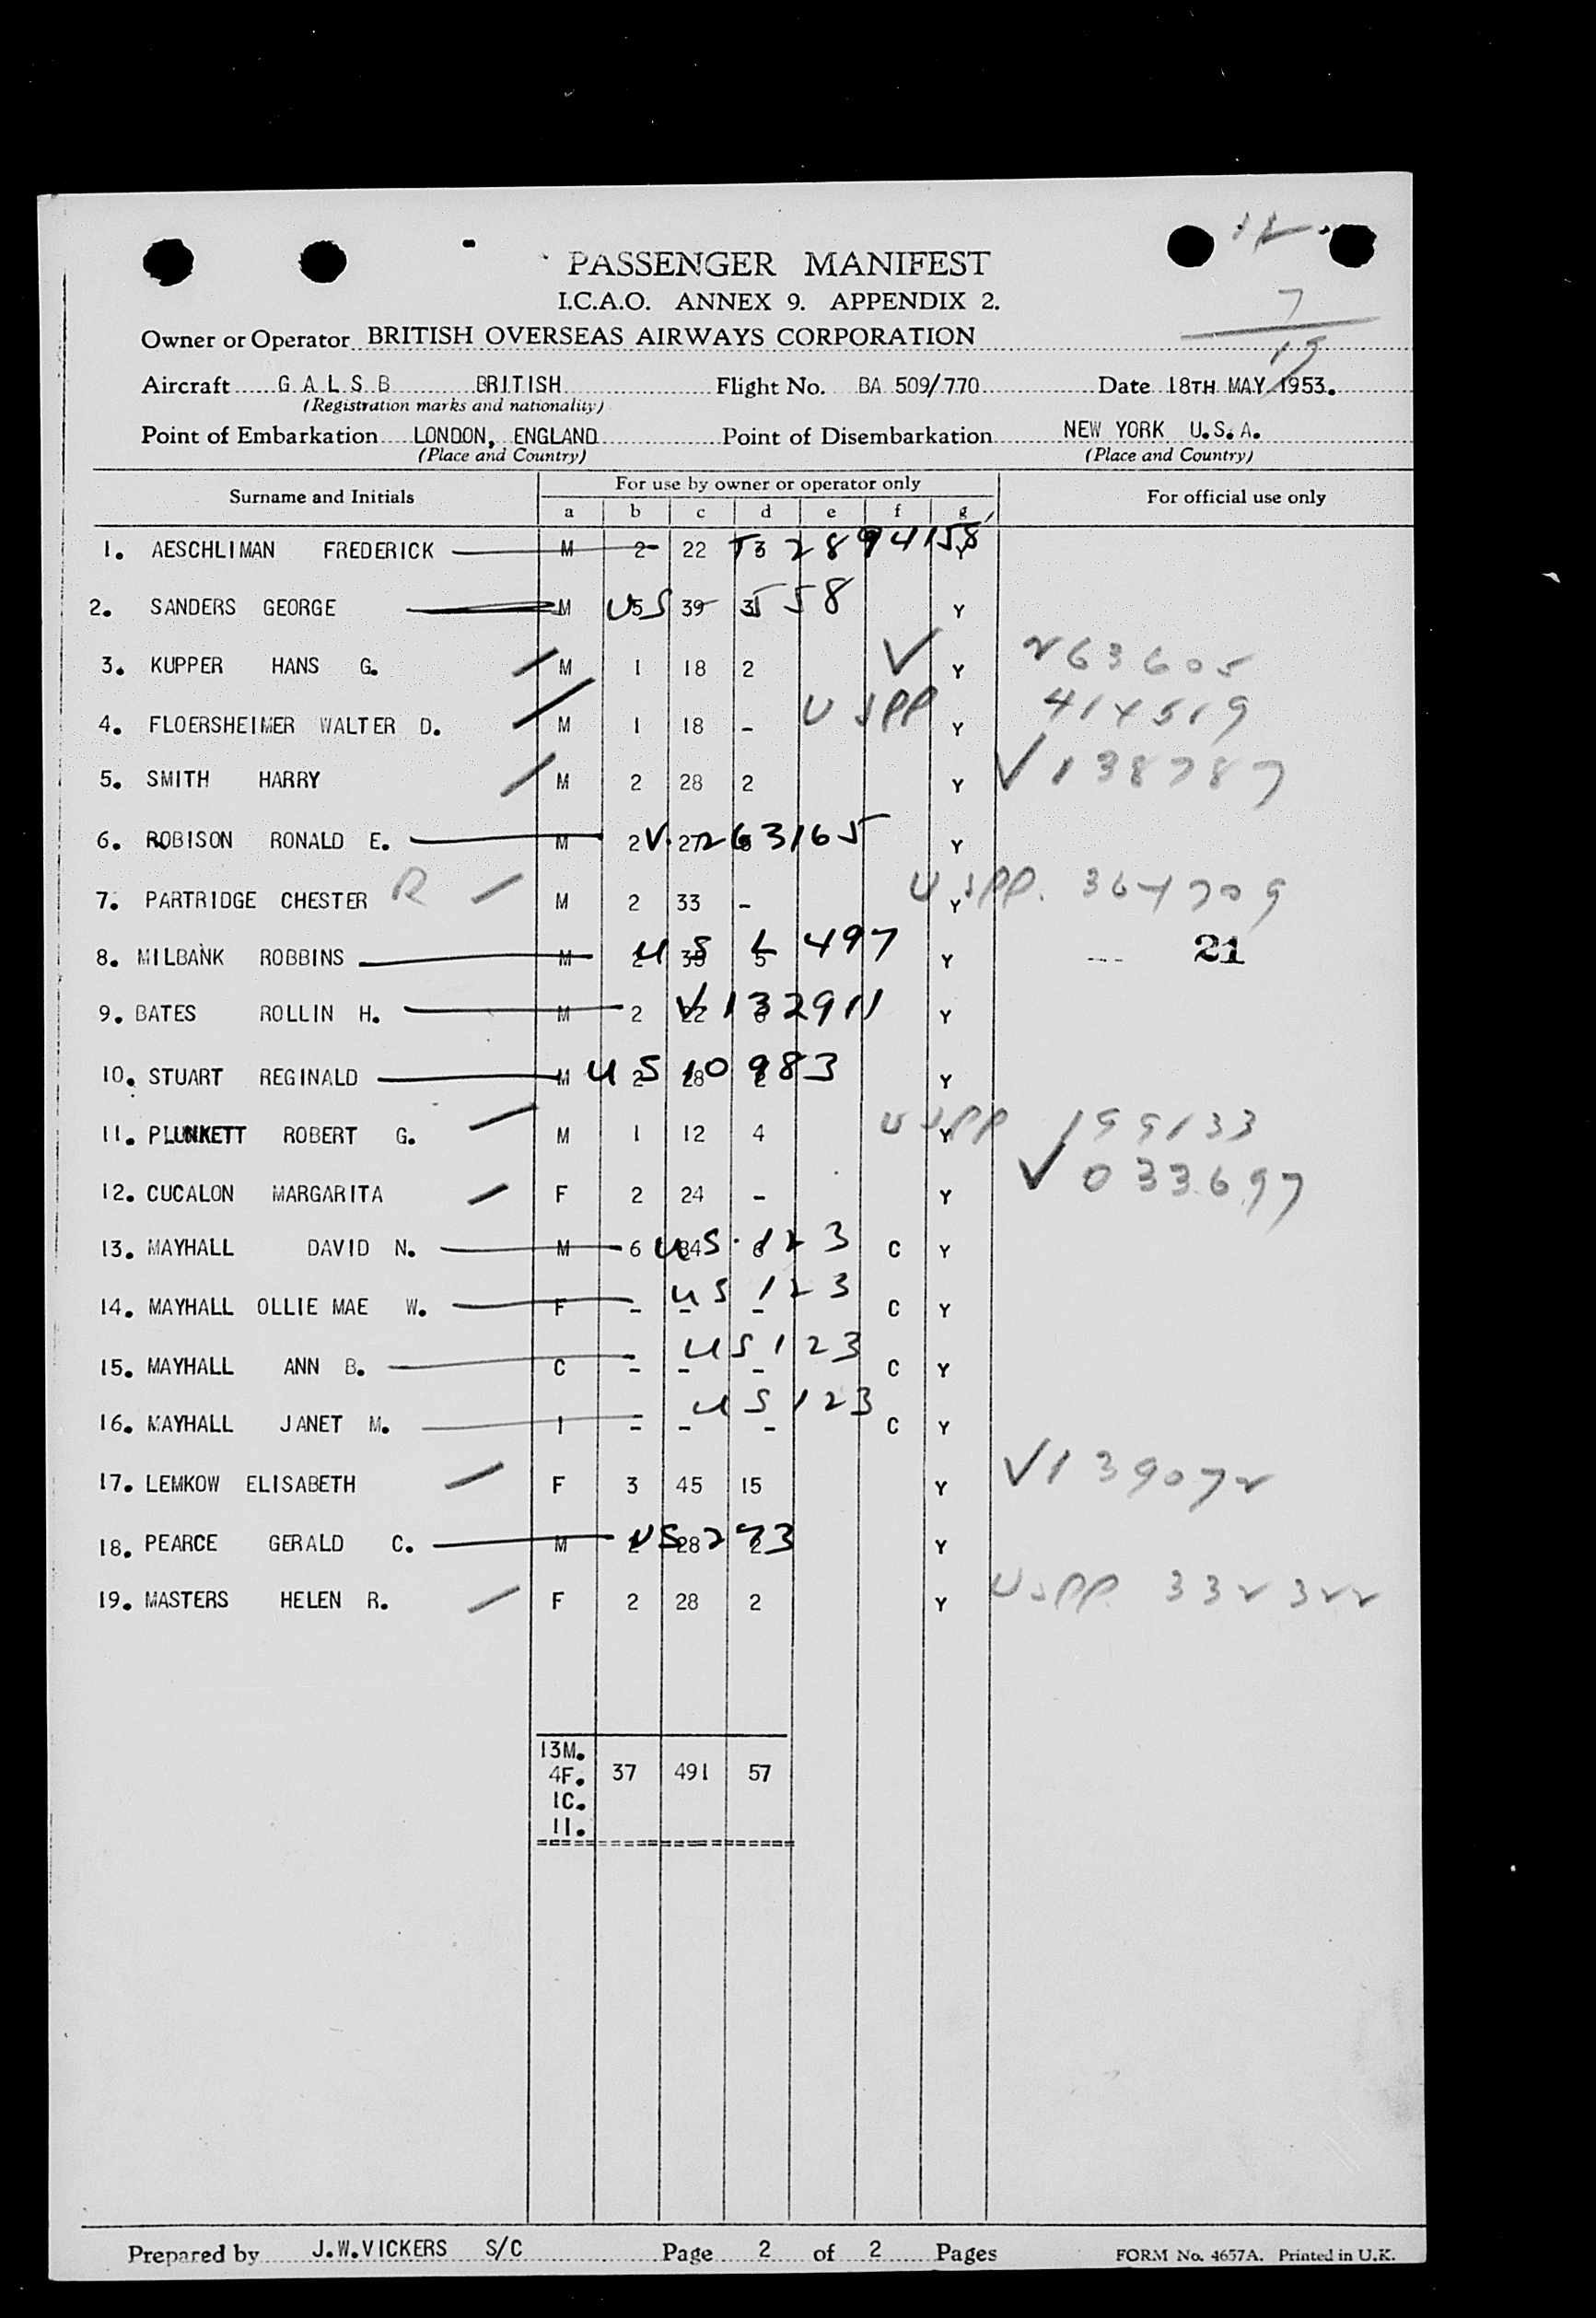 PASSENGER MANIFEST
I.C.A.O. ANNEX 9. APPENDIX 2.
7
19
Owner or Operator BRITISH OVERSEAS AIRWAYS CORPORATION
Aircraft G A L S B BRITISH Flight No. BA 509/770 Date 18TH MAY 1953.
(Registration marks and nationality)
Point of Embarkation LONDON, ENGLAND Point of Disembarkation NEW YORK U.S.A.
(Place and Country) (Place and Country)
Surname and Initials For use by owner or operator only For official use only
a b c d e f g
1. AESCHLIMAN FREDERICK M 2 22 3 Y
2. SANDERS GEORGE M US 5 39 558 Y
3. KUPPER HANS G. M 1 18 2 V Y 263605
4. FLOERSHEIMER WALTER D. M 1 18 - USPP Y 414519
5. SMITH HARRY M 2 28 2 Y V 138787
6. ROBISON RONALD E. M 2 V. 27 263165 Y
7. PARTRIDGE CHESTER R M 2 33 - Y USPP. 364709
8. MILBANK ROBBINS M US 497 Y 21
9. BATES ROLLIN H. M 2 22 V132911 Y
10. STUART REGINALD M 2 28 2 US 10983 Y
11. PLUNKETT ROBERT G. M 1 12 4 Y USPP 199133
12. CUCALON MARGARITA F 2 24 - Y V 033697
13. MAYHALL DAVID N. M 6 84 6 US 123 C Y
14. MAYHALL OLLIE MAE W. F - - - US 123 C Y
15. MAYHALL ANN B. C - - - US 123 C Y
16. MAYHALL JANET M. I - - - US 123 C Y
17. LEMKOW ELISABETH F 3 45 15 Y V139072
18. PEARCE GERALD C. M 2 28 2 US 273 Y
19. MASTERS HELEN R. F 2 28 2 Y USPP. 332322
13M.
4F. 37 491 57
1C.
1I.
Prepared by J.W.VICKERS S/C Page 2 of 2 Pages FORM No. 4657A. Printed in U.K.